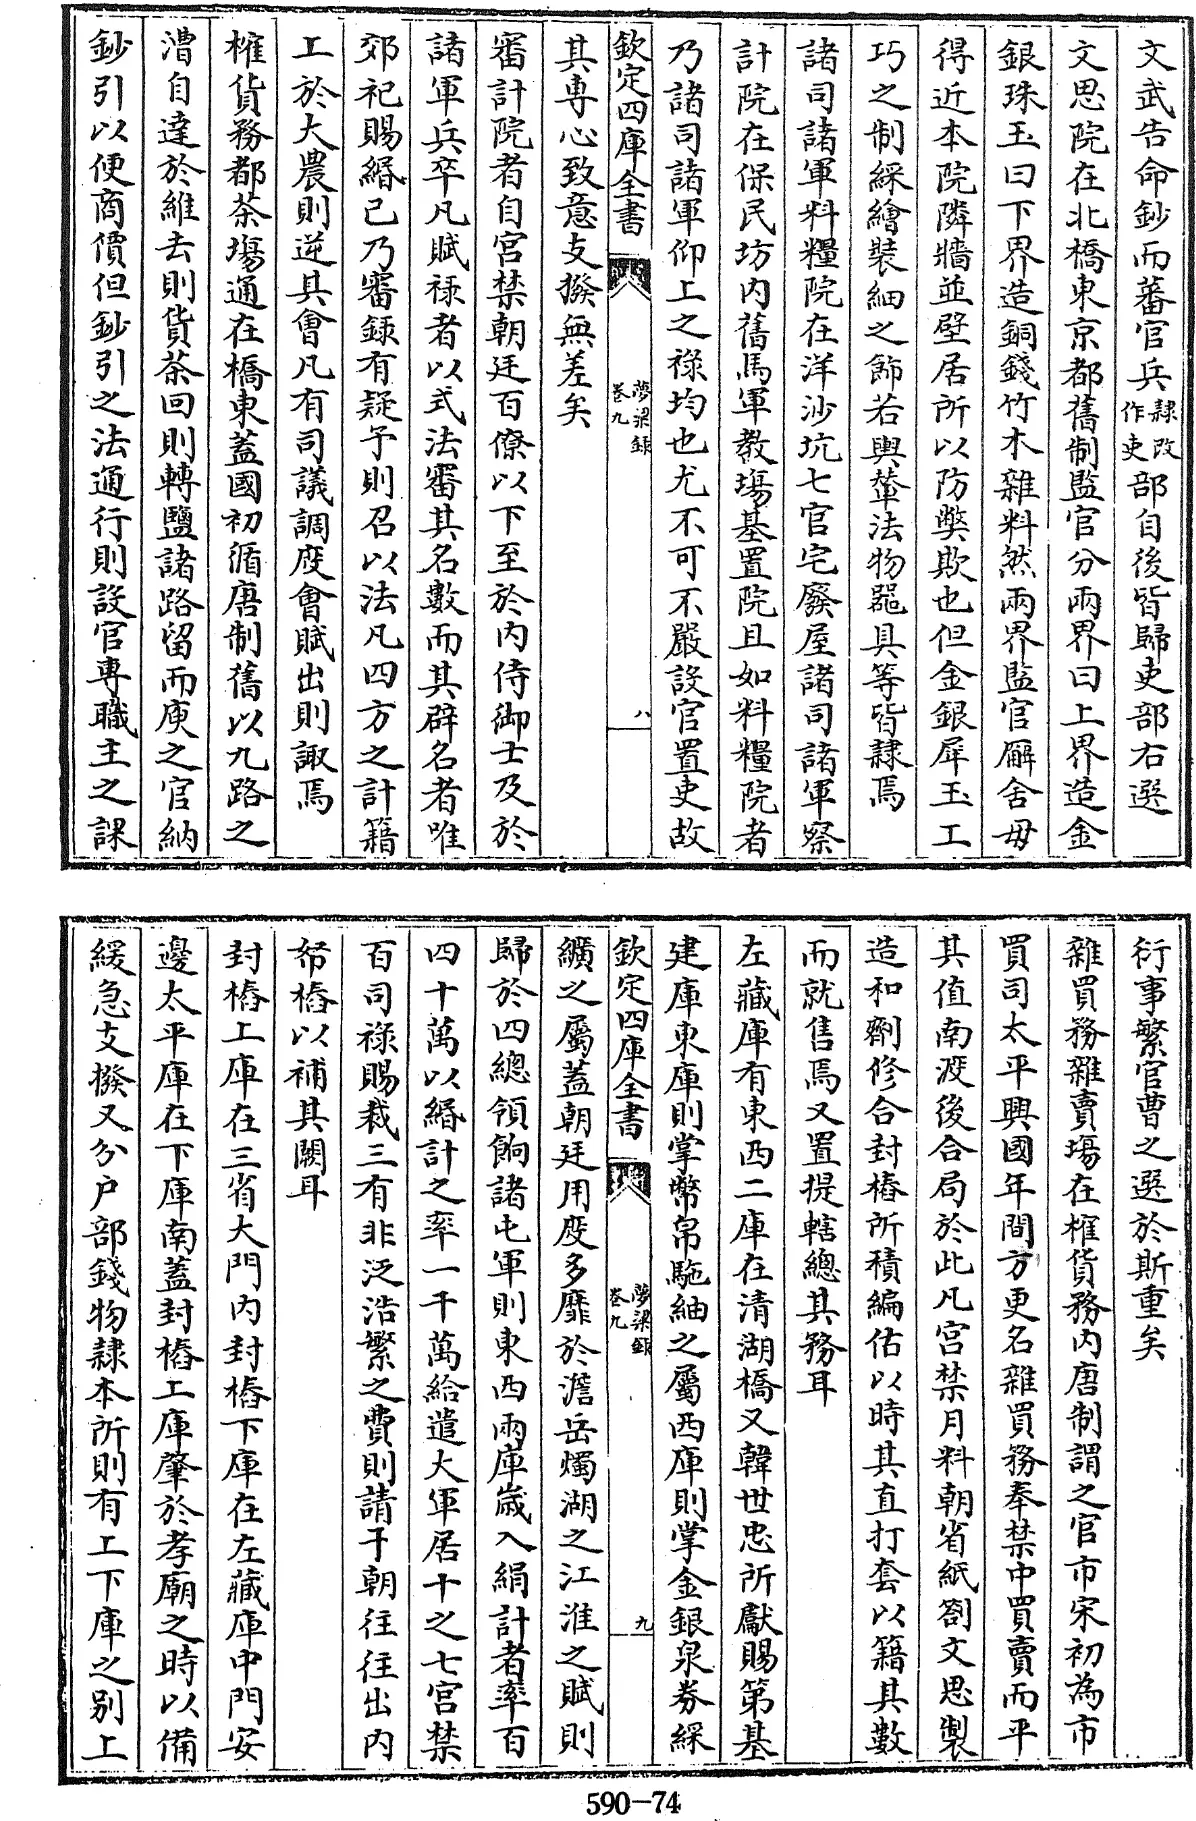 文武告命鈔而蕃官兵隸改作吏部自後皆歸吏部右選
文思院在北橋東京都舊制監官分兩界曰上界造金
銀珠玉曰下界造銅錢竹木雜料然兩界監官廨舍毋
得近本院隣牆並壁居所以防弊欺也但金銀犀玉工
巧之制綵繪裝細之飾若輿輦法物器具等皆隸焉
諸司諸軍料糧院在洋沙坑七官宅廢屋諸司諸軍察
計院在保民坊內舊馬軍教場基置院且如料糧院者
乃諸司諸軍仰上之祿均也尤不可不嚴設官置吏故
欽定四庫全書
夢粱錄
卷九
八
其專心致意支撥無差矣
審計院者自宮禁朝廷百僚以下至於內侍御士及於
諸軍兵卒凡賦祿者以式法審其名數而其辟名者唯
郊祀賜緡已乃審錄有疑予則召以法凡四方之計籍
工於大農則逆其會凡有司議調度會賦出則諏焉
榷貨務都茶場通在橋東蓋國初循唐制舊以九路之
漕自達於維去則貨茶回則轉鹽諸路留而庾之官納
鈔引以便商價但鈔引之法通行則設官專職主之課
衍事繁官曹之選於斯重矣
雜買務雜賣場在榷貨務內唐制謂之官市宋初為市
買司太平興國年間方更名雜買務奉禁中買賣而平
其值南渡後合局於此凡宮禁月料朝省紙劄文思製
造和劑修合封樁所積編估以時其直打套以籍其數
而就售焉又置提轄總其務耳
左藏庫有東西二庫在清湖橋又韓世忠所獻賜第基
建庫東庫則掌幣帛駞紬之屬西庫則掌金銀泉券綵
欽定四庫全書
夢粱錄
卷九
九
纊之屬蓋朝廷用度多靡於澹岳燭湖之江淮之賦則
歸於四總領餉諸屯軍則東西兩庫歲入絹計者率百
四十萬以緡計之率一千萬給遣大軍居十之七宮禁
百司祿賜裁三有非泛浩繁之費則請于朝往往出內
帑樁以補其闕耳
封樁上庫在三省大門內封樁下庫在左藏庫中門安
邊太平庫在下庫南蓋封樁工庫肇於孝廟之時以備
緩急支撥又分户部錢物隸本所則有上下庫之別上
590-74